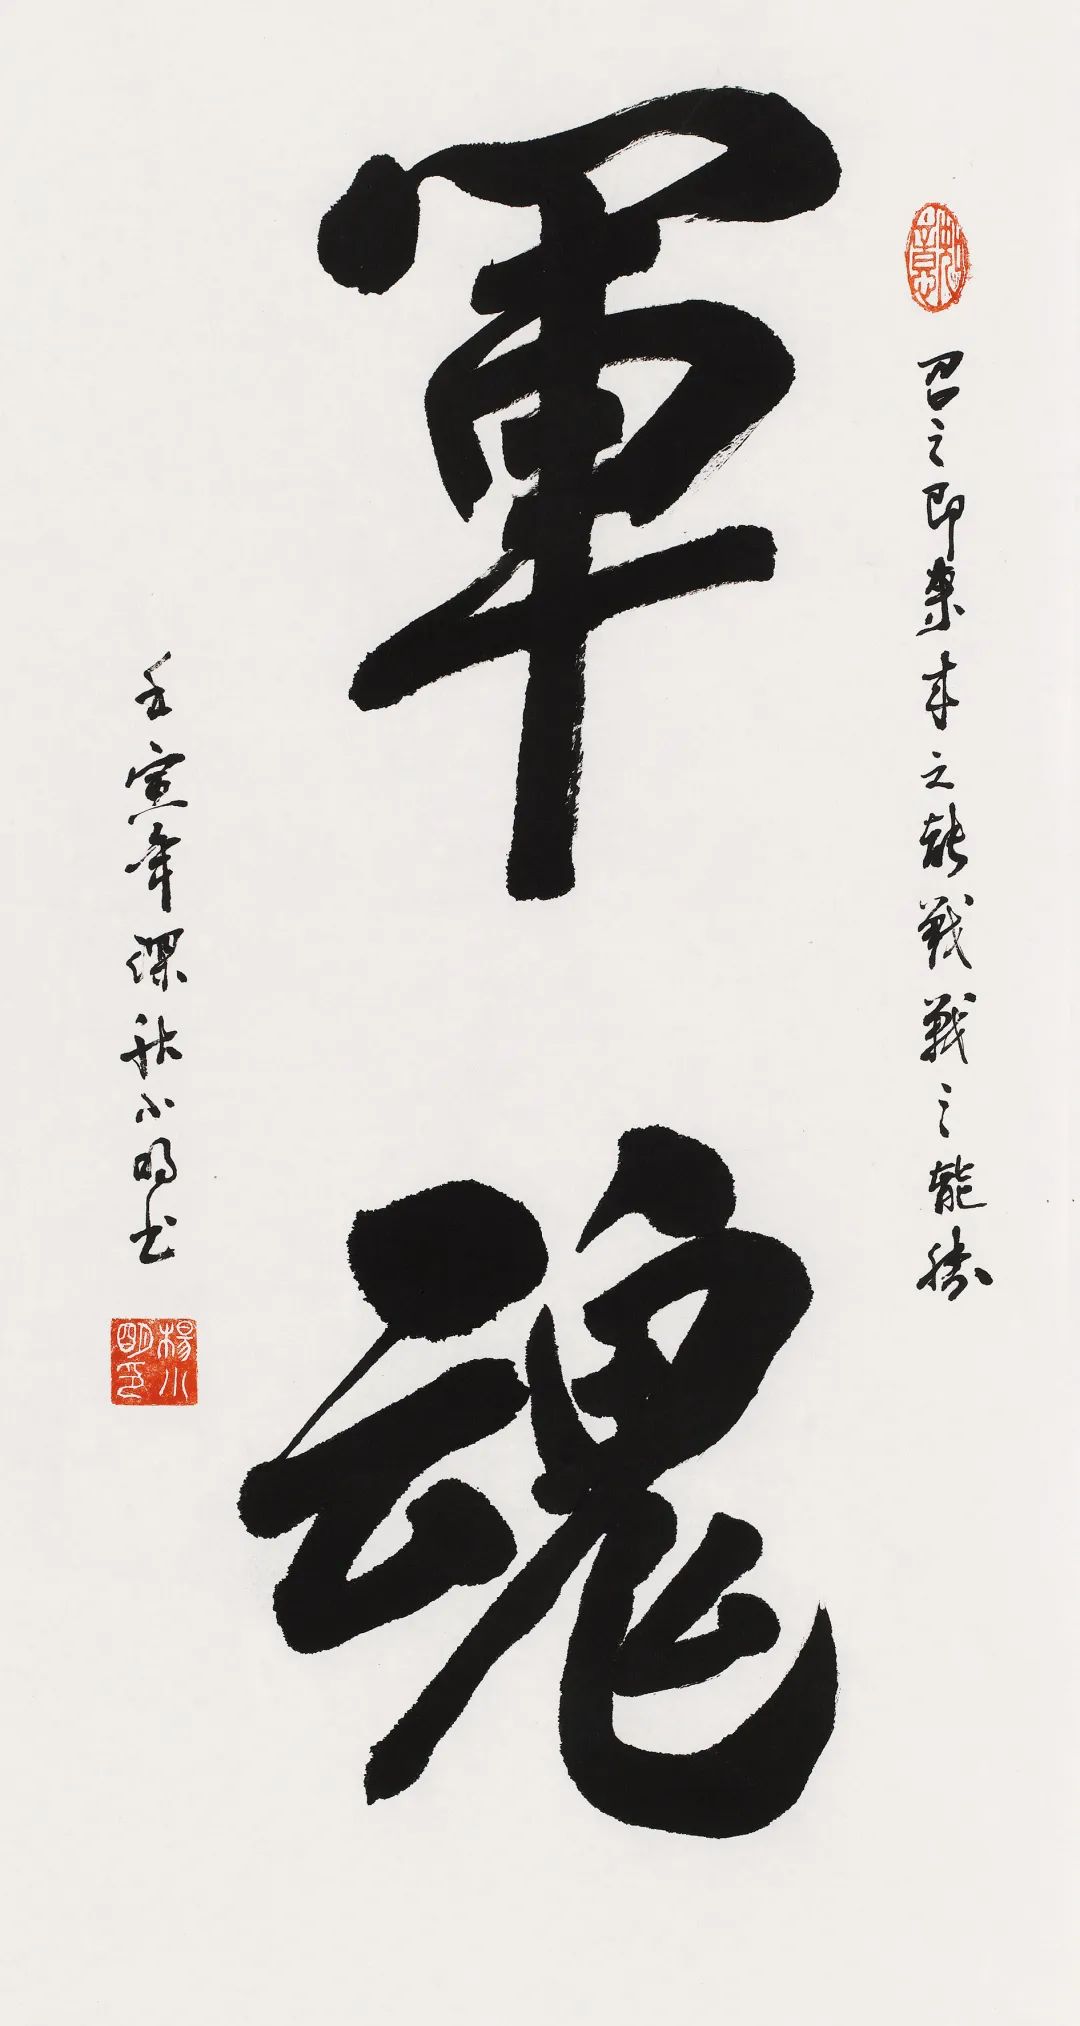 如意
召之即來来之能戰戰之能勝
軍魂
壬寅年深秋小明书
楊小
明印